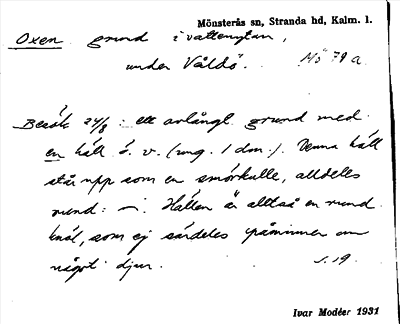 Mönsterås sn, Stranda hd, Kalm. l.
Oxen grund i vattenytan,
under Våldö. Mö 79 a
Besök 24/8: ett avlångt grund med
en häll ö. v. (ung. 1 dm.). Denna häll
står upp som en smörkulle, alldeles
rund: Hällen är alltså en rund
knöl, som ej särdeles påminner om
något djur. s. 19.
Ivar Modéer 1931